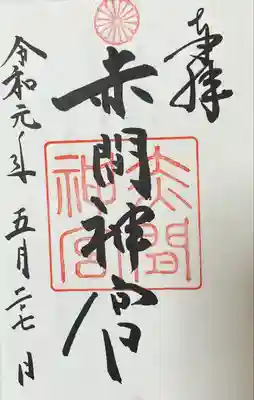 奉拝
赤間神宮
赤間
神宮
令和元年五月二十七日